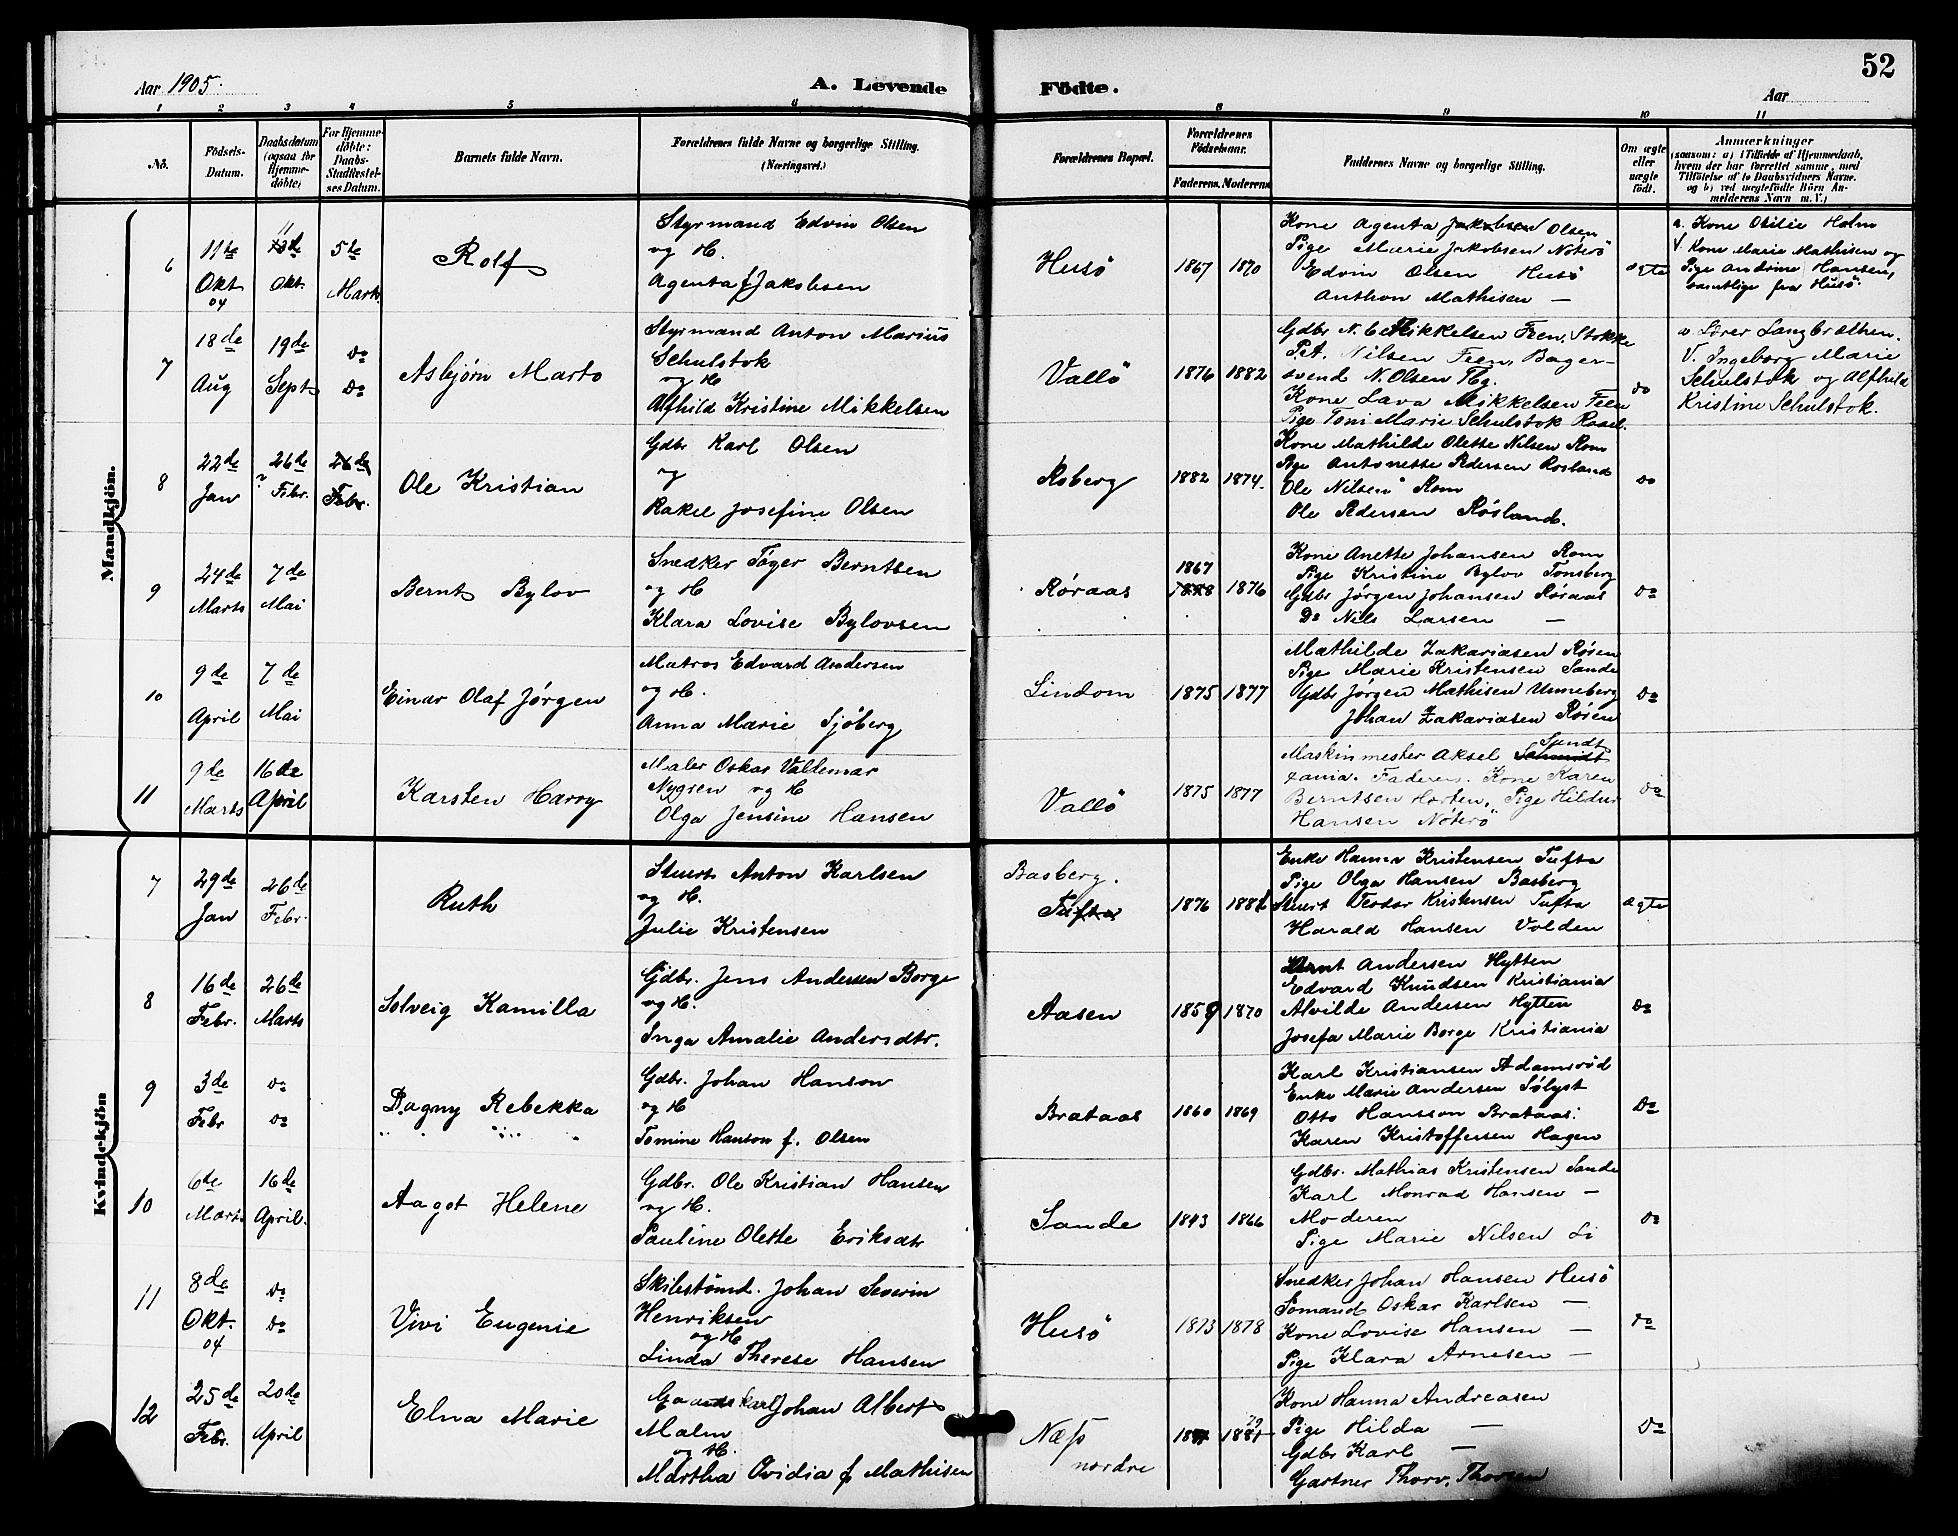 52
Aar 1905.
A. Levende
Födte.
Aar
1 2 3 4 5 6
8 9 10 11
No.
Födsels-Datum.
Daabsdatum (ogsaa for Hjemmedøbte)
For Hjemmedøbte: Daabs-Stadfæstelses Datum.
Barnets fulde Navn.
Forældrenes fulde Navne og borgerlige Stilling.
(Næringsvei.)
Forældrenes Bopæl.
Forældrenes Födselsaar.
Faderens. Moderens.
Faddernes Navne og borgerlige Stilling.
Om ægte eller uægte födt.
Anmærkninger
(saasom: a) i Tilfælde af Hjemmedaab,
hvem der har forrettet samme, med
Tilföielse af to Daabsvidners Navne.
og b) ved uægtefödte Börn An-
melderens Navn m. V.)
Mandkjön.
6
11te Okt 04
11 de Okt.
5te Marts
Rolf
Styrmand Edvin Olsen
og H.
Agenta f Jakobsen
Husö
1867 1870
Kone Agenta Jakobsen Olsen
Pige Marie Jakobsen Nøterö
Edvin Olsen Husö
Anthon Mathisen —
ægte
a. Kone Otilie Holm
V. Kone Marie Mathisen og
Pige Andrine Hansen,
samtlige fra Husö.
7
18de Aug
19de Sept
do do
Asbjørn Marto
Styrmand Anton Marius
Schulstok
og H
Alfhild Kristine Mikkelsen
Vallö
1876 1882
Gdbr N. C. Mikkelsen Feen, Stokke
Pet. Nilsen Feen, Bager-
svend N. Olsen Tbg.
Kone Lava Mikkelsen Feen
Pige Toni Marie Schulstok Rael.
do
a Lærer Langbræthen.
V. Ingeborg Marie
Schulstok og Alfhild
Kristine Schulstok.
8
22de Jan
26de Febr.
26de Febr.
Ole Kristian
Gdbr Karl Olsen
og
Rakel Josefine Olsen
Rsberg
1882 1874
Kone Mathilde Olette Nilsen Rom
Pige Antonette Pedersen Rosland
Ole Nilsen Rom
Ole Pedersen Røsland.
do
9
24de Marts
7de Mai
Bernt Bylov
Snedker Töger Berntsen
og H
Klara Lovise Bylovsen
Röraas
1867
1876
Kone Anette Johansen Rom
Pige Kristine Bylov Tönsberg
Gdbr Jørgen Johansen Røraas
Do Nils Larsen —
do
10
9de April
7de Mai
Einar Olaf Jørgen
Matros Edvard Andersen
og H.
Anna Marie Sjöberg
Lindom
1875 1877
Mathilde Zakariasen Rösen
Pige Marie Kristensen Sande
Gdbr Jørgen Mathisen Unneberg
Johan Zakariasen Rösen
do
11
9de Marts
16de April
Karsten Harry
Maler Oskar Valdemar
Nygren og H
Olga Jensine Hansen
Vallö
1875 1877
Sundt
Maskinmester Aksel Schmidt
Xania. Faderen. Kone Karen
Berntsen Horten. Pige Hildur
Hansen Nöterö
do
Kvindekjön
7
29de Jan
26de Febr.
Ruth
Stuert Anton Karlsen
og H.
Julie Kristensen
Basberg.
Tufta
1876 1881
Enke Hanna Kristensen Tufta
Pige Olga Hansen Basberg
Stuert Teodor Kristensen Tufta
Harald Hansen Volden
ægte
8
16de Febr.
26de Marts
Solveig Kamilla
Gdbr. Jens Andersen Borge
og H.
Inga Amalie Andersdtr.
Aasen
1859 1870
Bernt Andersen Hytten
Edvard Knudsen Kristiania
Alvilde Andersen Hytten
Josefa Marie Borge Kristiania
do
9
3de Febr
do do
Dagny Rebekka
Gdbr. Johan Hanson
og H
Tomine Hanson f. Olsen
Brataas
1860 1869
Karl Kristiansen Adamsröd
Enke Marie Andersen Sölyst
Otto Hansson Brataas
Karen Kristoffersen Hagen
do
10
6de Marts
16de April.
Aagot Helene
Gdbr. Ole Kristian Hansen
og H.
Pauline Olette Eriksdtr
Sande
1843 1866
Gdbr. Mathias Kristensen Sande
Karl Monrad Hansen —
Moderen
Pige Marie Nilsen Li
do
11
8de Okt. 04
do do
Vivi Eugenie
Skibstømd. Johan Severin
Henriksen
og H
Linda Therese Hansen
Husö
1873 1878
Snedker Johan Hansen Husö
Sömand Oskar Karlsen —
Kone Lovise Hansen —
Pige Klara Arnesen —
do
12
25de Febr.
20de April
Elna Marie
Gaardskarl Johan Albert
Malm
og H.
Martha Ovidia f Mathisen
Næss nordre
79
1881
Kone Hanna Andreasen
Pige Hilda —
Gdbr Karl —
Gartner Thorv. Thorsen
do